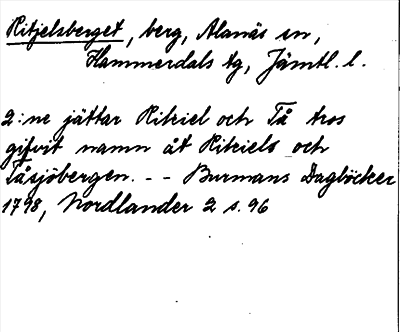 Ritjelsberget, berg, Alanäs sn,
Hammerdals tg, Jämtl. l.
2:ne jättar Ritriel och Tå tros
gifvit namn åt Ritriels och
Tåsjöbergen. - - Burmans Dagböcker
1798, Nordlander 2 s. 96